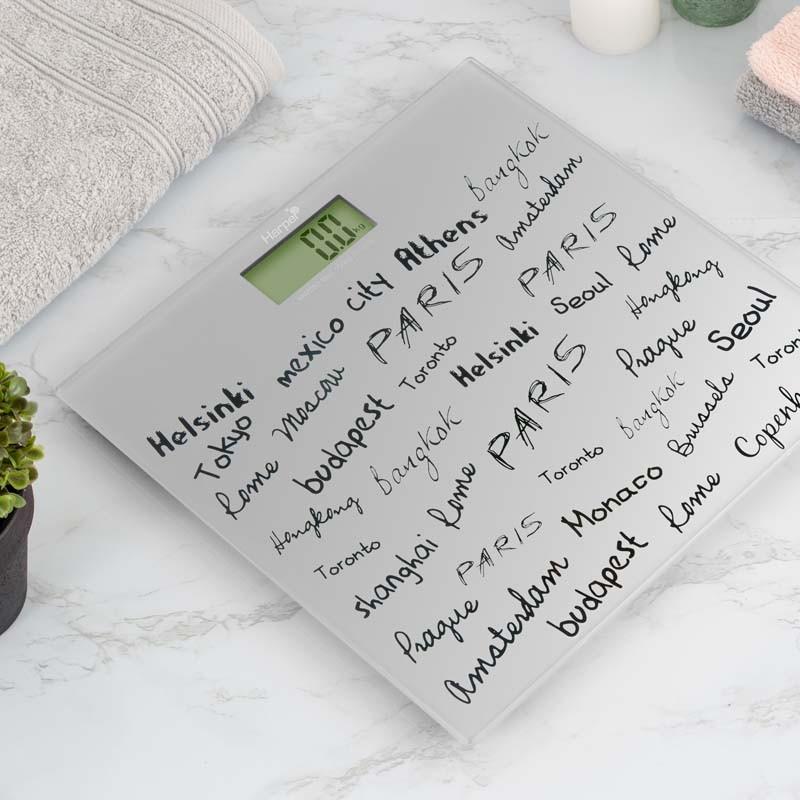 Harper
0.0 kg
Bangkok
Helsinki mexico city Athens Amsterdam
Tokyo Moscow PARIS PARIS Rome
Rome budapest Toronto Helsinki Seoul Hongkong
Hongkong Bangkok PARIS Prague Seoul
Toronto shanghai Rome Toronto Bangkok Brussels Toron
Prague PARIS Monaco Rome Copenh
Amsterdam budapest